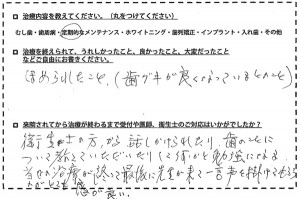 □ 治療内容を教えてください。（丸をつけてください）
むし歯・歯周病・定期的なメンテナンス・ホワイトニング・歯列矯正・インプラント・入れ歯・その他
□ 治療を終えられて、うれしかったこと、良かったこと、大変だったこと
などご自由にお書きください。
ほめられたこと、(歯グキが良くなっているとのこと)
□ 来院されてから治療が終わるまで受付や医師、衛生士のご対応はいかがでしたか？
衛生士の方から話しかけられたり、歯のことに
ついて教えていただいたりして とても勉強になる
治療が終って最後に先生が来て一言声を掛けてもらう
感が良い。